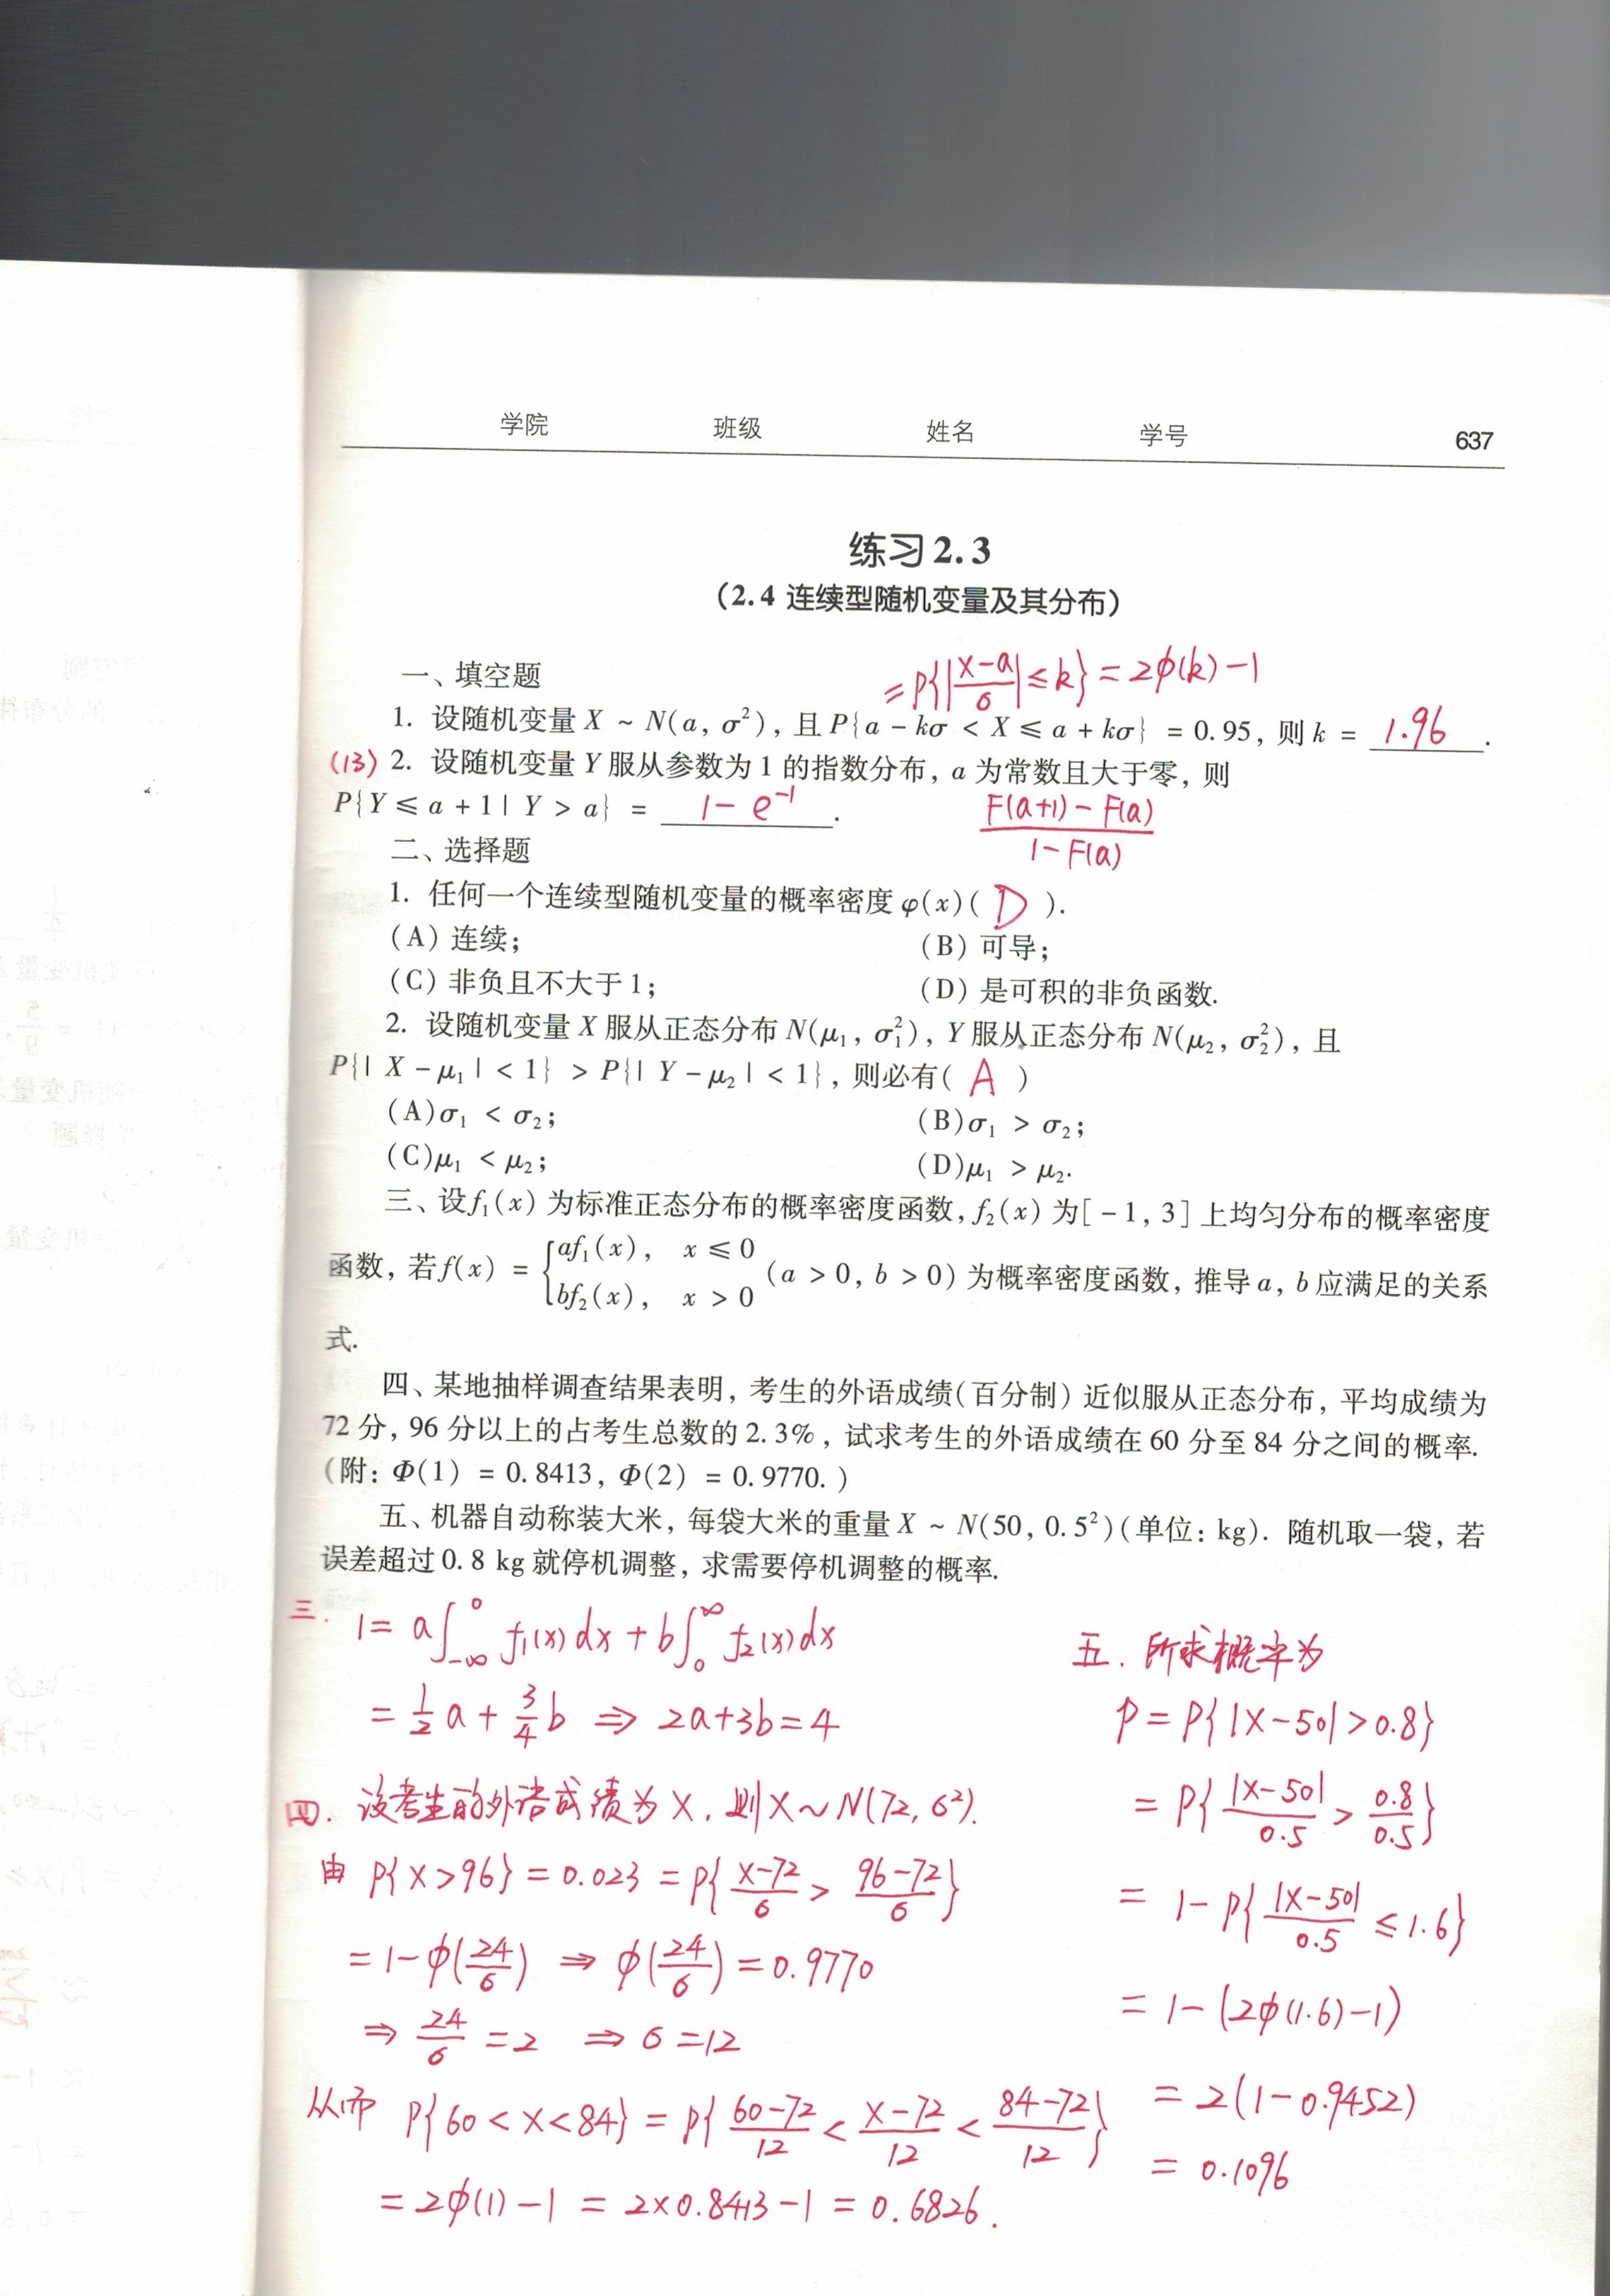 学院 班级 姓名 学号 637
练习2.3
（2.4 连续型随机变量及其分布）
一、填空题
= P{|X-a/σ| ≤ k} = 2φ(k) - 1
1. 设随机变量 X ~ N(a, σ²), 且 P{a - kσ < X ≤ a + kσ} = 0.95, 则 k = 1.96.
(13) 2. 设随机变量 Y 服从参数为 1 的指数分布, a 为常数且大于零, 则
P{Y ≤ a + 1 | Y > a} = 1 - e⁻¹. F(a+1) - F(a) / 1 - F(a)
二、选择题
1. 任何一个连续型随机变量的概率密度 φ(x)( D ).
(A) 连续; (B) 可导;
(C) 非负且不大于 1; (D) 是可积的非负函数.
2. 设随机变量 X 服从正态分布 N(μ₁, σ₁²), Y 服从正态分布 N(μ₂, σ₂²), 且
P{| X - μ₁ | < 1} > P{| Y - μ₂ | < 1}, 则必有( A )
(A)σ₁ < σ₂; (B)σ₁ > σ₂;
(C)μ₁ < μ₂; (D)μ₁ > μ₂.
三、设 f₁(x) 为标准正态分布的概率密度函数, f₂(x) 为[-1, 3] 上均匀分布的概率密度
函数, 若 f(x) = { af₁(x), x ≤ 0 ; bf₂(x), x > 0 (a > 0, b > 0) 为概率密度函数, 推导 a, b 应满足的关系
式.
四、某地抽样调查结果表明, 考生的外语成绩(百分制) 近似服从正态分布, 平均成绩为
72 分, 96 分以上的占考生总数的 2.3%, 试求考生的外语成绩在 60 分至 84 分之间的概率.
(附: Φ(1) = 0.8413, Φ(2) = 0.9770. )
五、机器自动称装大米, 每袋大米的重量 X ~ N(50, 0.5²)(单位: kg). 随机取一袋, 若
误差超过 0.8 kg 就停机调整, 求需要停机调整的概率.
三. 1 = a∫₋∞⁰ f₁(x)dx + b∫₀^∞ f₂(x)dx
= 1/2 a + 3/4 b ⇒ 2a+3b=4
四. 设考生的外语成绩为 X, 则 X~N(72, σ²).
由 P{X>96} = 0.023 = P{X-72/σ > 96-72/σ}
= 1-φ(24/σ) ⇒ φ(24/σ) = 0.9770
⇒ 24/σ = 2 ⇒ σ = 12
从而 P{60<X<84} = P{60-72/12 < X-72/12 < 84-72/12}
= 2φ(1) - 1 = 2×0.8413 - 1 = 0.6826.
五. 所求概率为
P = P{|X-50| > 0.8}
= P{|X-50|/0.5 > 0.8/0.5}
= 1-P{|X-50|/0.5 ≤ 1.6}
= 1-(2φ(1.6)-1)
= 2(1-0.9452)
= 0.1096